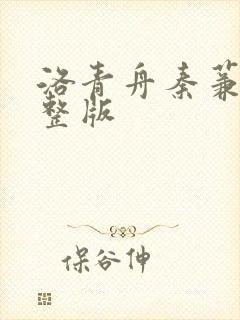 洛青舟秦蒹
整版
保谷伸